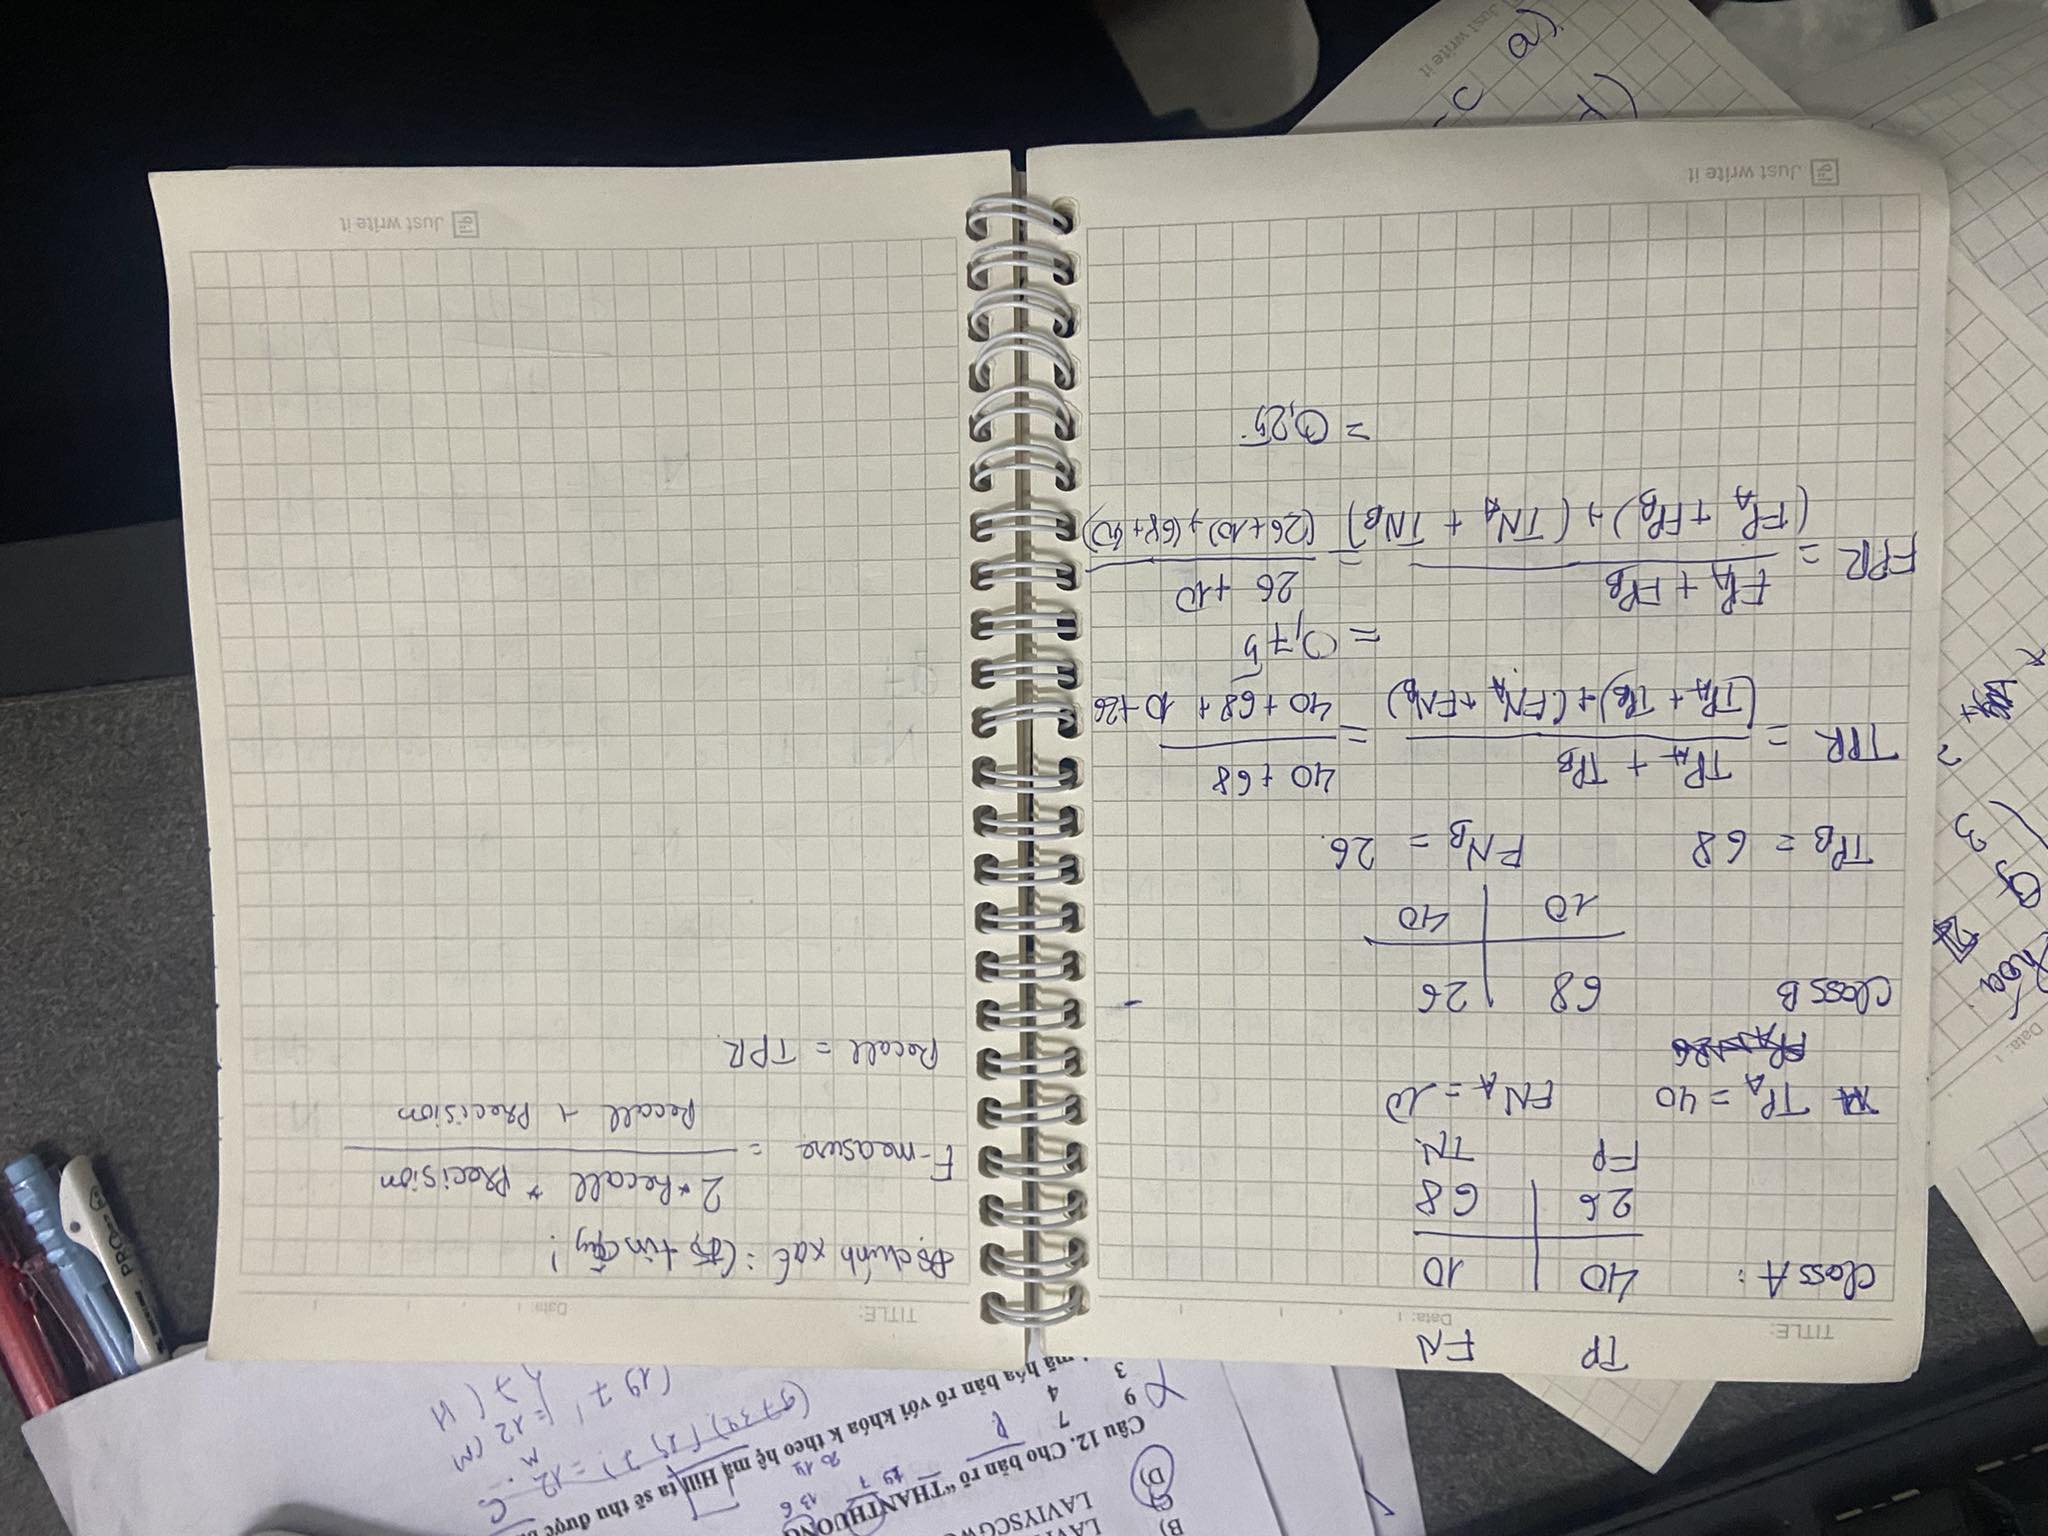 B)
LAVIYSCGW
D)
Câu 12. Cho bản rõ “THANTHUONG
19 7 13 6
20 14
9 7
3 4
P
mã hóa bản rõ với khóa k theo hệ mã Hill ta sẽ thu được
TITLE:
Data:
TP FN
Class A: 40 10
26 68
FP TN.
TP_A = 40 FN_A = 10
Class B 68 26
10 40
TP_B = 68 FN_B = 26.
TPR = (TP_A + TP_B) / ((TP_A + TP_B) + (FN_A + FN_B)) = (40 + 68) / (40 + 68 + 10 + 26)
= 0,75
FPR = (FP_A + FP_B) / ((FP_A + FP_B) + (TN_A + TN_B)) = (26 + 10) / ((26 + 10) + (68 + 40))
= 0,25
Just write it
TITLE:
Data:
Độ chính xác : (độ tin cậy!
F-measure = (2 * Recall * Precision) / (Recall + Precision)
Recall = TPR.
Just write it
Data:
hóa
3
Just write it